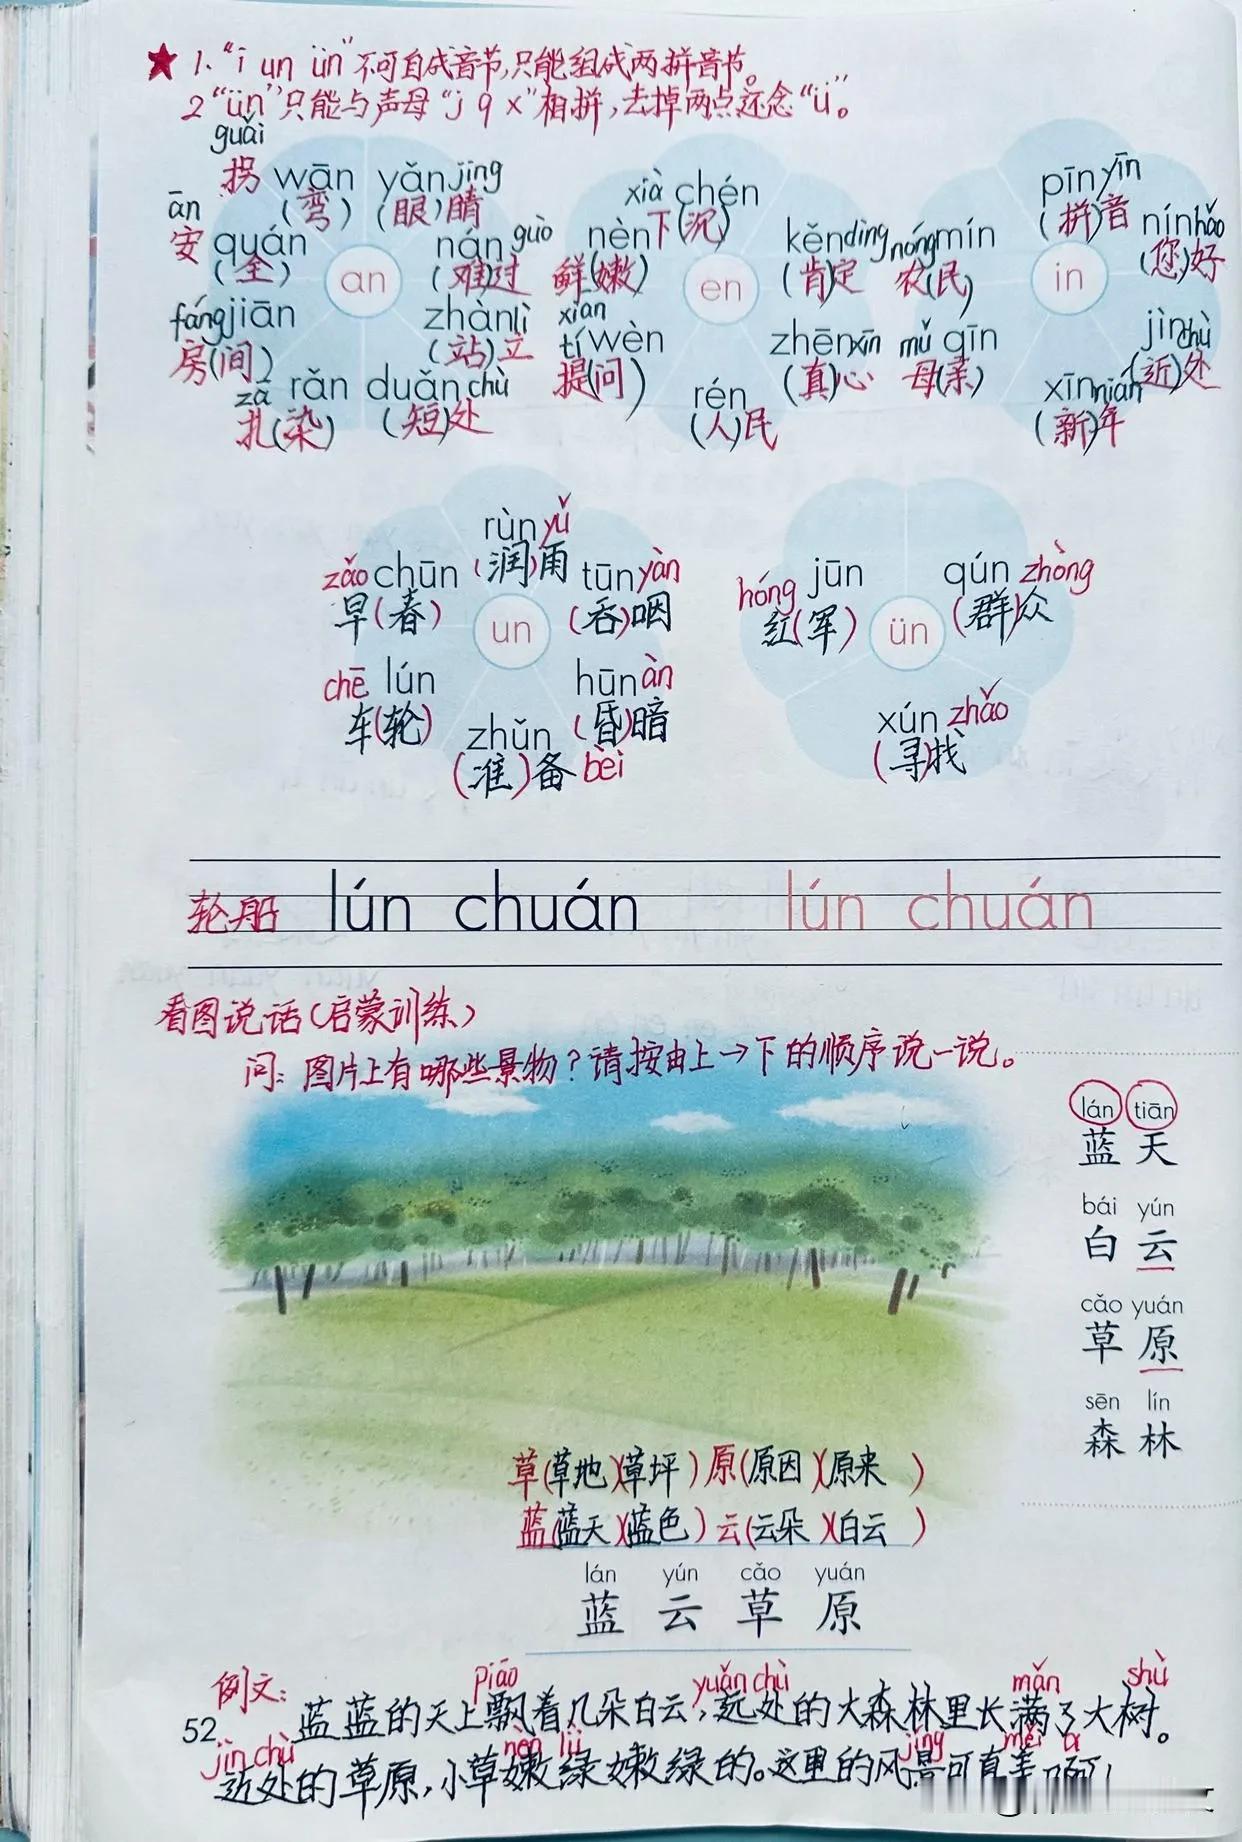 ★ 1. "i un ün"不可自成音节,只能组成两拼音节。
2 "ün"只能与声母"j q x"相拼,去掉两点还念"ü"。
guǎi wān yǎn jing
拐(弯) (眼)睛
ān quán nán guò
安(全) (难)过
an
fáng jiān zhàn lì
房(间) (站)立
zā rǎn duǎn chù
扎(染) (短)处
xià chén
下(沉)
nèn kěn dìng
鲜(嫩) (肯)定
xian
en
tí wèn zhēn xīn
提(问) (真)心
rén
(人)民
pīn yīn
(拼)音
nóng mín nín hǎo
农(民) (您)好
in
mǔ qīn jìn chù
母(亲) (近)处
xīn nián
(新)年
rùn yǔ
(润)雨
zǎo chūn tūn yàn
早(春) (吞)咽
un
chē lún hūn àn
车(轮) (昏)暗
zhǔn
(准)备 bèi
hóng jūn qún zhòng
红(军) (群)众
ün
xún zhǎo
(寻)找
轮船 lún chuán lún chuán
看图说话(启蒙训练)
问:图片上有哪些景物?请按由上→下的顺序说一说。
lán tiān
蓝天
bái yún
白云
cǎo yuán
草原
sēn lín
森林
草(草地)(草坪) 原(原因)(原来)
蓝(蓝天)(蓝色) 云(云朵)(白云)
lán yún cǎo yuán
蓝 云 草 原
piāo yuǎn chù mǎn shù
例文:蓝蓝的天上飘着几朵白云,远处的大森林里长满了大树。
52
jìn chù nèn lǜ jǐng měi
近处的草原,小草嫩绿嫩绿的。这里的风景可真美啊!